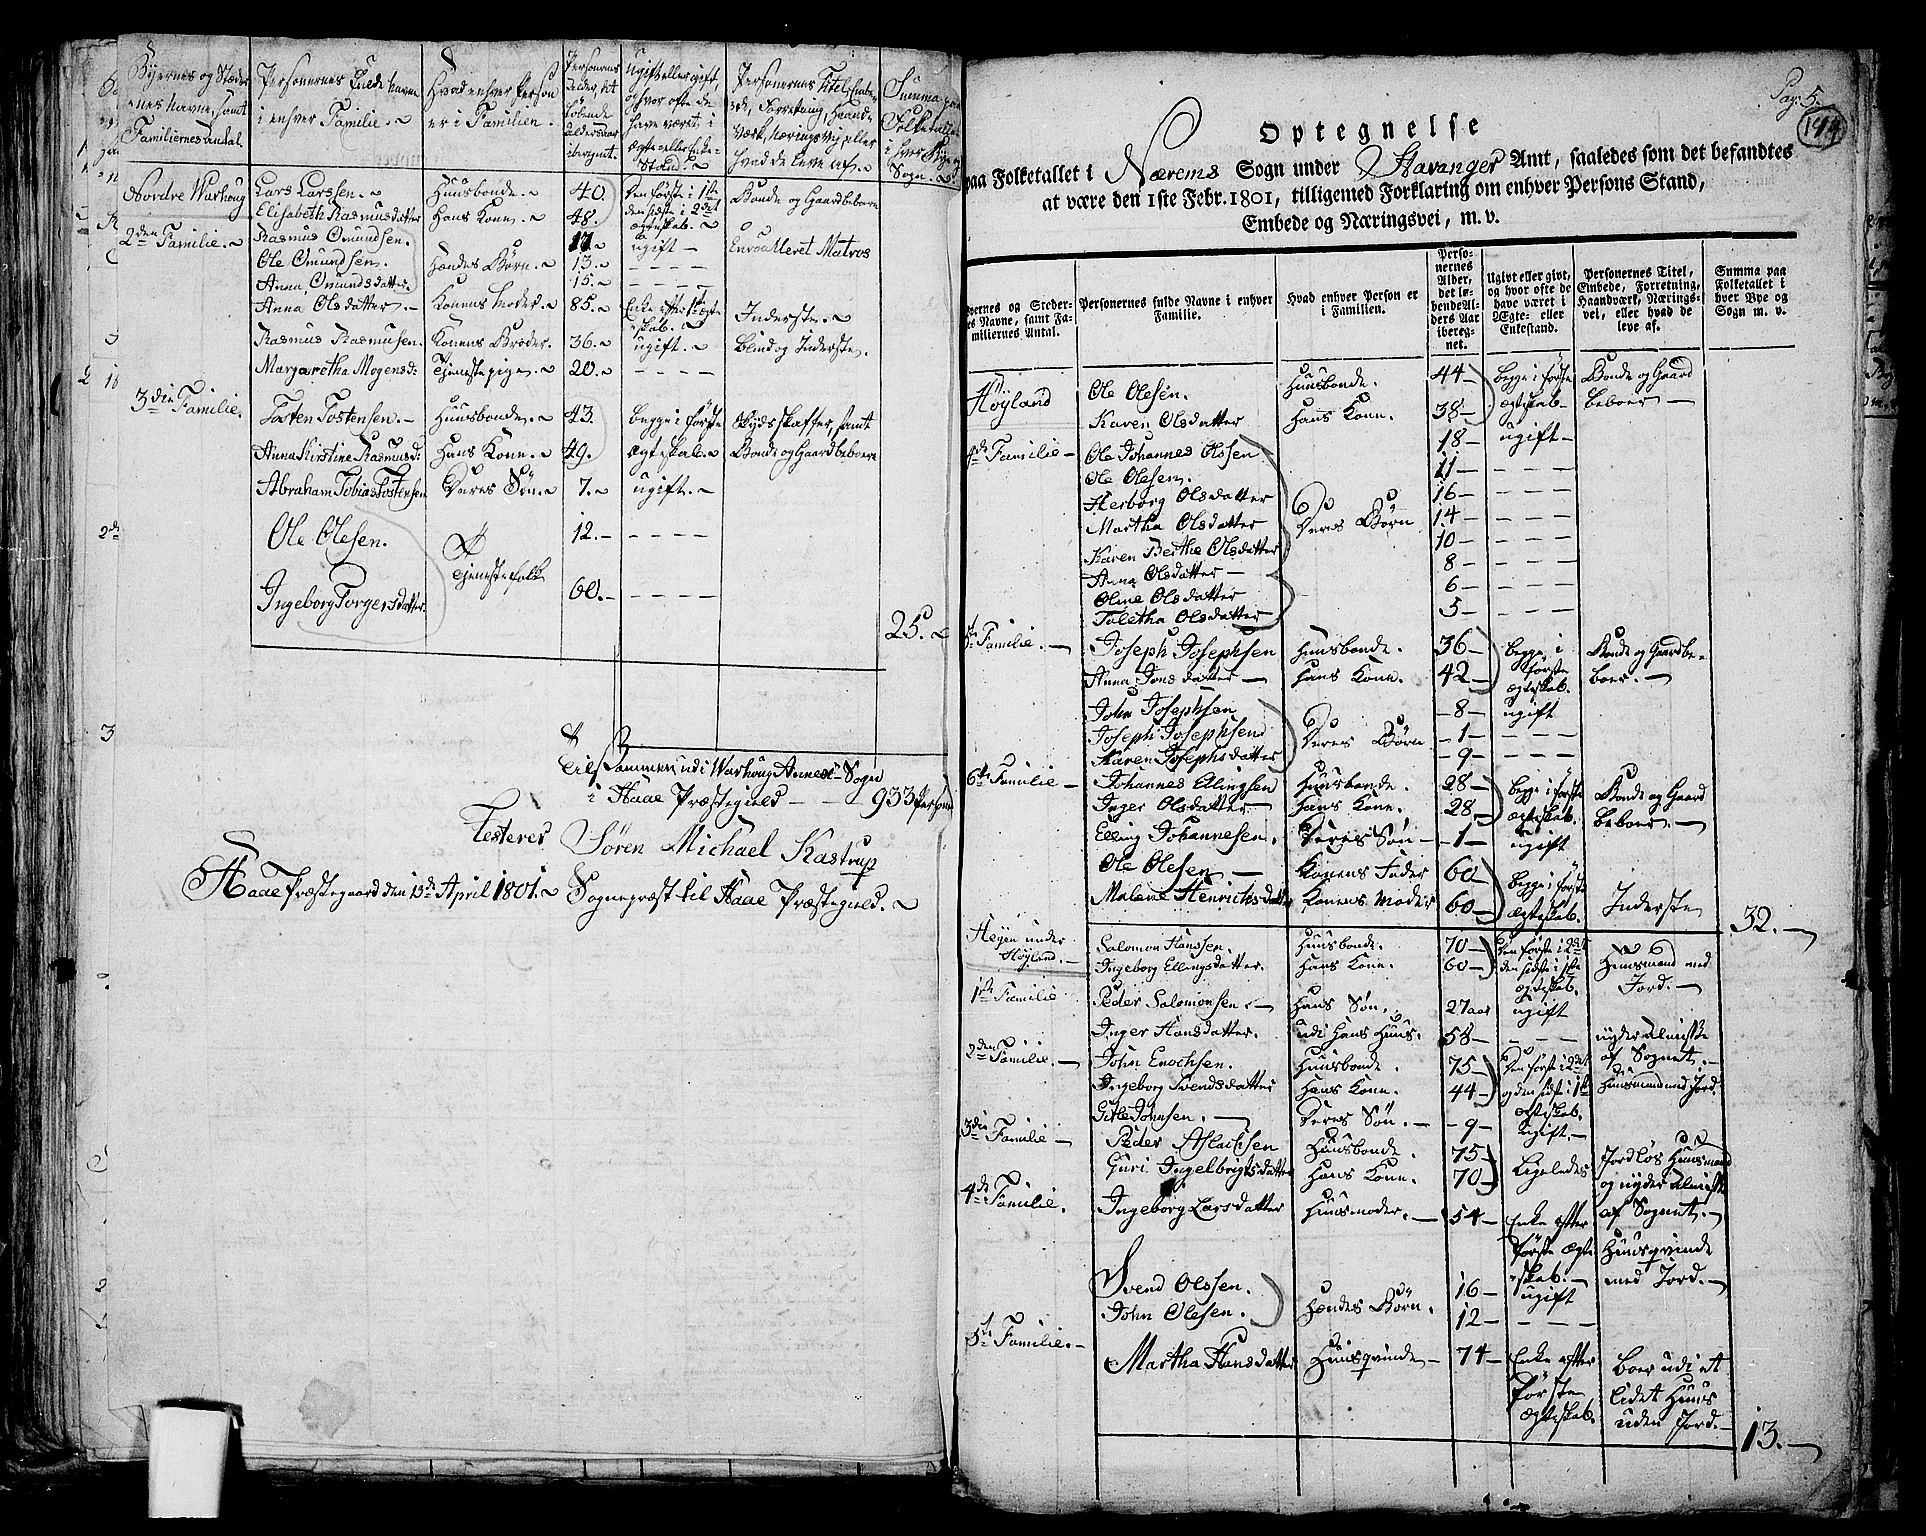 Byernes og Stæder
nes Navne, samt
Familiernes Andal.
Personernes Fulde Navne
i enhver Familie.
Hvad enhver Person
er i Familien.
Personernes
Alder, det
løbende
Aldersaar
iberegnet.
Ugift eller gift,
og hvor ofte de
have været i
Ægte eller Enke-
Stand.
Personernes Titel, Embe-
de, Forretning, Haand-
værk, Næringsvej eller
hvad de leve af.
Summa paa
Folketallet
i hver Bye og
Sogn.
Nordre Warhoug
Lars Larssen. Huusbonde. 40. Den første i 1ste Bonde og Gaardbeboere
Elisabeth Rasmusdatter Hans Kone. 48. den sidste i 2det
Ægteskab.
2den Familie. Rasmus Omundsen. 17. ugift Enroulleret Matros
Ole Omundsen. Hendes Børn. 13. - - - -
Anna Omundsdatter. 15. - - - -
Anna Olsdatter. Konens Moder. 85. Enke efter 1te Ægte
skab. Inderste.
Rasmus Rasmusen. Konens Broder. 36. ugift. Blind og Inderste.
Margaretha Mogensd: Tjenestepige. 20. - - - -
3die Familie.
Tosten Tostensen. Huusbonde. 43. begge i første Bydskaffer, samt
Anna Kirstine Rasmusd: Hans Kone. 49. Ægteskab. Bonde og Gaardbeboere
Abraham Tobias Tostensen Deres Søn. 7. ugift.
Ole Olesen. 12. - - - -
Tjenestefolk
Ingeborg Torgersdatter. 60. - - - -
25.
Tilsammen udi Warhoug Annex Sogn
i Haae Præstegield - - 933 Personer
Testerer Søren Michael Kastrup
Haae Præstegaard den 13de April 1801. Sognepræst til Haae Præstegield.
Pag: 5.
144
Optegnelse
paa Folketallet i Nærems Sogn under Stavanger Amt, saaledes som det befandtes
at være den 1ste Febr. 1801, tilligemed Forklaring om enhver Persons Stand,
Embede og Næringsvei, m. v.
Byernes og Steder-
nes Navne, samt Fa-
miliernes Antal.
Personernes fulde Navne i enhver
Familie.
Hvad enhver Person er
i Familien.
Perso-
nernes
Alder,
det lø-
bende Al-
ders Aar
ibereg-
net.
Ugivt eller givt,
og hvor ofte de
have været i
Ægte- eller
Enkestand.
Personernes Titel,
Embede, Forretning,
Haandværk, Nærings-
vei, eller hvad de
leve af.
Summa paa
Folketallet i
hver Bye og
Sogn m. v.
Høyland Ole Olesen. Huusbonde. 44 begge i første Bonde og Gaard
Karen Olsdatter Hans Kone. 38 Ægteskab beboer
4de Familie Ole Johannes Olssen 18 ugift
Ole Olesen. 11 - - -
Herborg Olsdatter 16 - - -
Martha Olsdatter Deres Børn 14 - - -
Karen Berthe Olsdatter 10 - - -
Anna Olsdatter 8 - - -
Oline Olsdatter 6 - - -
Toletha Olsdatter 5 - - -
5te Familie. Joseph Josephsen Huusbonde. 36 begge i Bonde og Gaardbe-
Anna Jonsdatter Hans Kone. 42 første beboer.
Ægteskab.
John Josephsen 8 ugift
Joseph Josephsen Deres Børn 1 - - -
Karen Josephsdatter 9 - - -
6te Familie Johannes Ellingsen Huusbonde. 28 begge i første Bonde og Gaard
Inger Olsdatter Hans Kone. 28 Ægteskab. beboer.
Elling Johannesen. Deres Søn 1 ugift
Ole Olesen Konens Fader 60 begge i første
Malene Henrichsdatter Konens Moder 60 Ægteskab. Inderste
32.
Høyen under
Høyland.
Salomon Hanssen. Huusbonde. 70 Den første i 2det Huusmand med
Ingeborg Ellingsdatter. Hans Kone. 60 den sidste i 1ste Jord.
Ægteskab.
1ste Familie Peder Salomonsen. Hans Søn. 27 aar ugift
Inger Hansdatter. udi Hans Huus. 58 - - - nyder Almisse
af Sognet.
2den Familie. John Enochsen. Huusbonde. 75 Den første i 2det Huusmand med Jord.
Ingeborg Svendsdatter Hans Kone. 44 og den sidste i 1ste
Ægteskab.
Gitle Johnsen. Deres Søn. 9 ugift.
3die Familie Peder Aslachsen Huusbonde. 75 Ligeledes Jordløs Huusmand
Guri Ingelbrigtsdatter Hans Kone. 70 og nyder Almisse
af Sognet.
4de Familie. Ingeborg Larsdatter Huusmoder. 54 Enke efter
første Ægte Huusqvinde
skab. med Jord.
Svend Olssen. 16 ugift
Hendes Børn.
John Olesen. 12 - - -
5te Familie. Martha Hansdatter Huusqvinde 74 Enke efter Boer udi et
første lidet Huus
Ægteskab. uden Jord.
13.